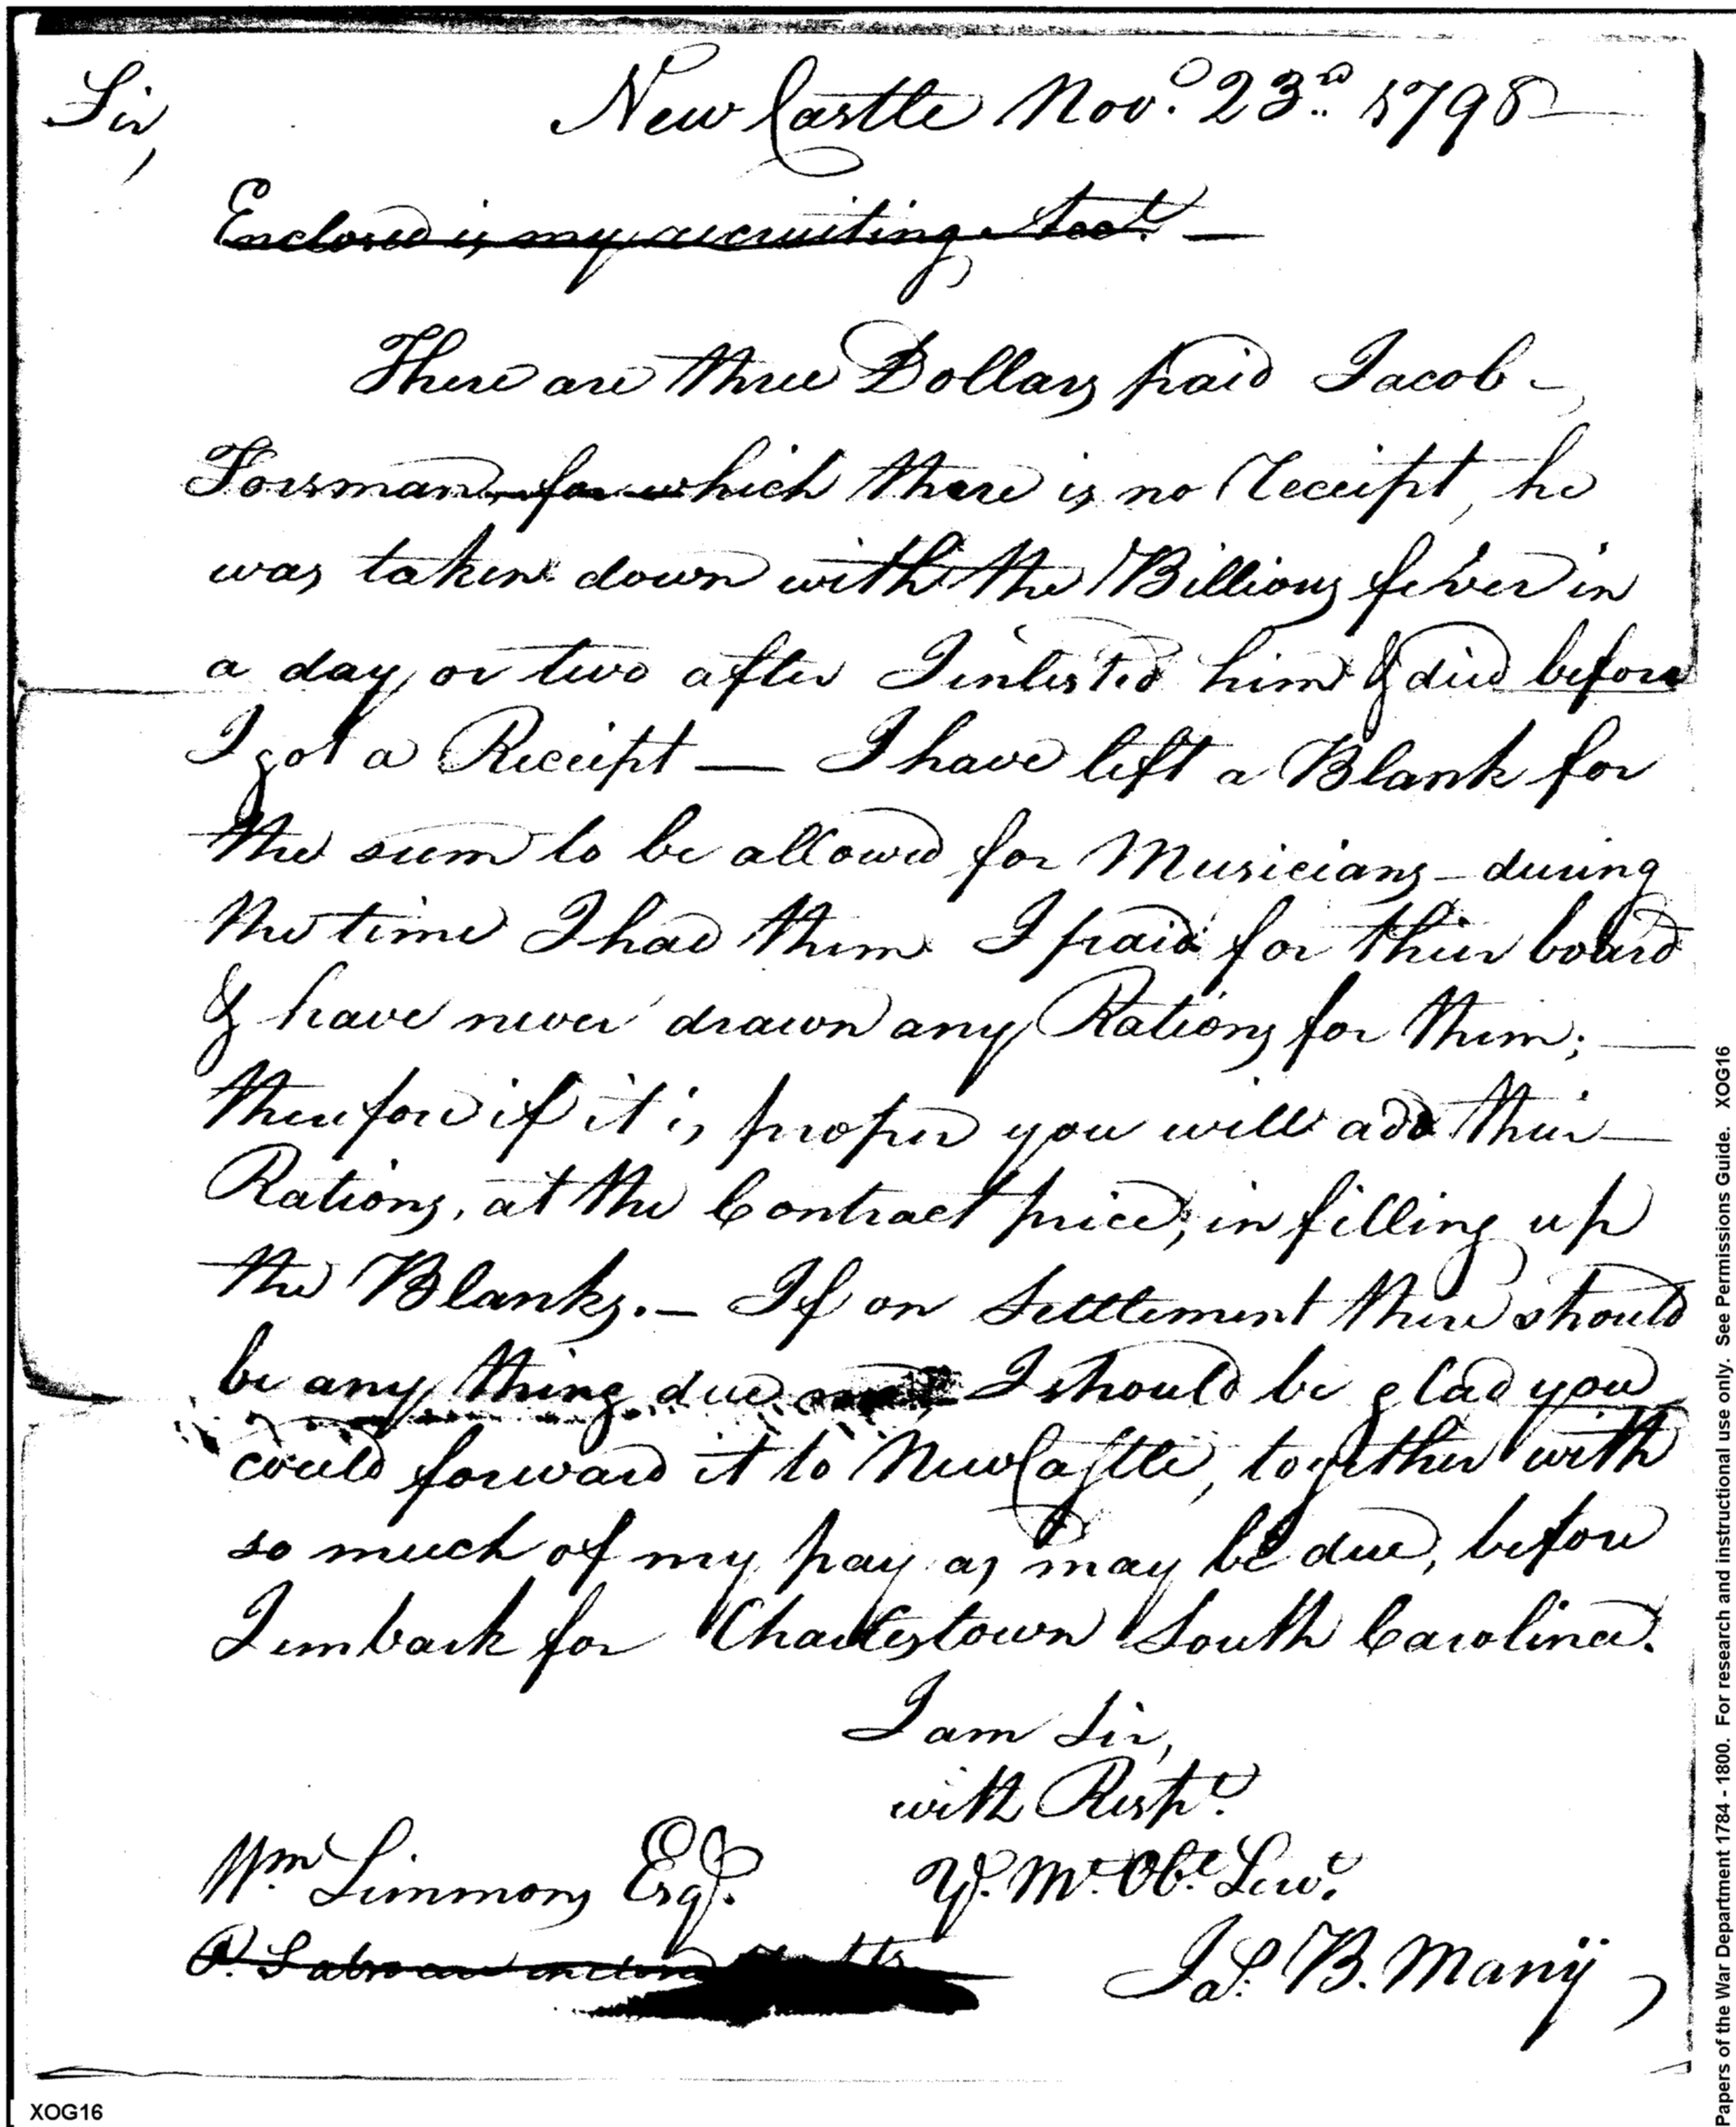 Sir,
New Castle Nov.r 23rd 1798
Enclosed is my recruiting Acct. —
There are three Dollars paid Jacob -
Forsman, for which there is no Receipt, he
was taken down with the Billious fever in
a day or two after I inlisted him & died before
I got a Receipt — I have left a Blank for
the sum to be allowed for Musicians - during
the time I had them I paid for their board
& have never drawn any Rations for them; —
therefore if it is proper you will add their —
Rations, at the Contract price, in filling up
the Blanks. — If on Settlement there should
be any thing due I should be glad you
could forward it to New Castle, together with
so much of my pay as may be due, before
I embark for Charlestown South Carolina.
I am Sir,
with Respt.
Wm Simmons Esqr.
Y. Mt. Obt. Servt.
Jas. B. Many
XOG16
Papers of the War Department 1784 - 1800. For research and instructional use only. See Permissions Guide. XOG16